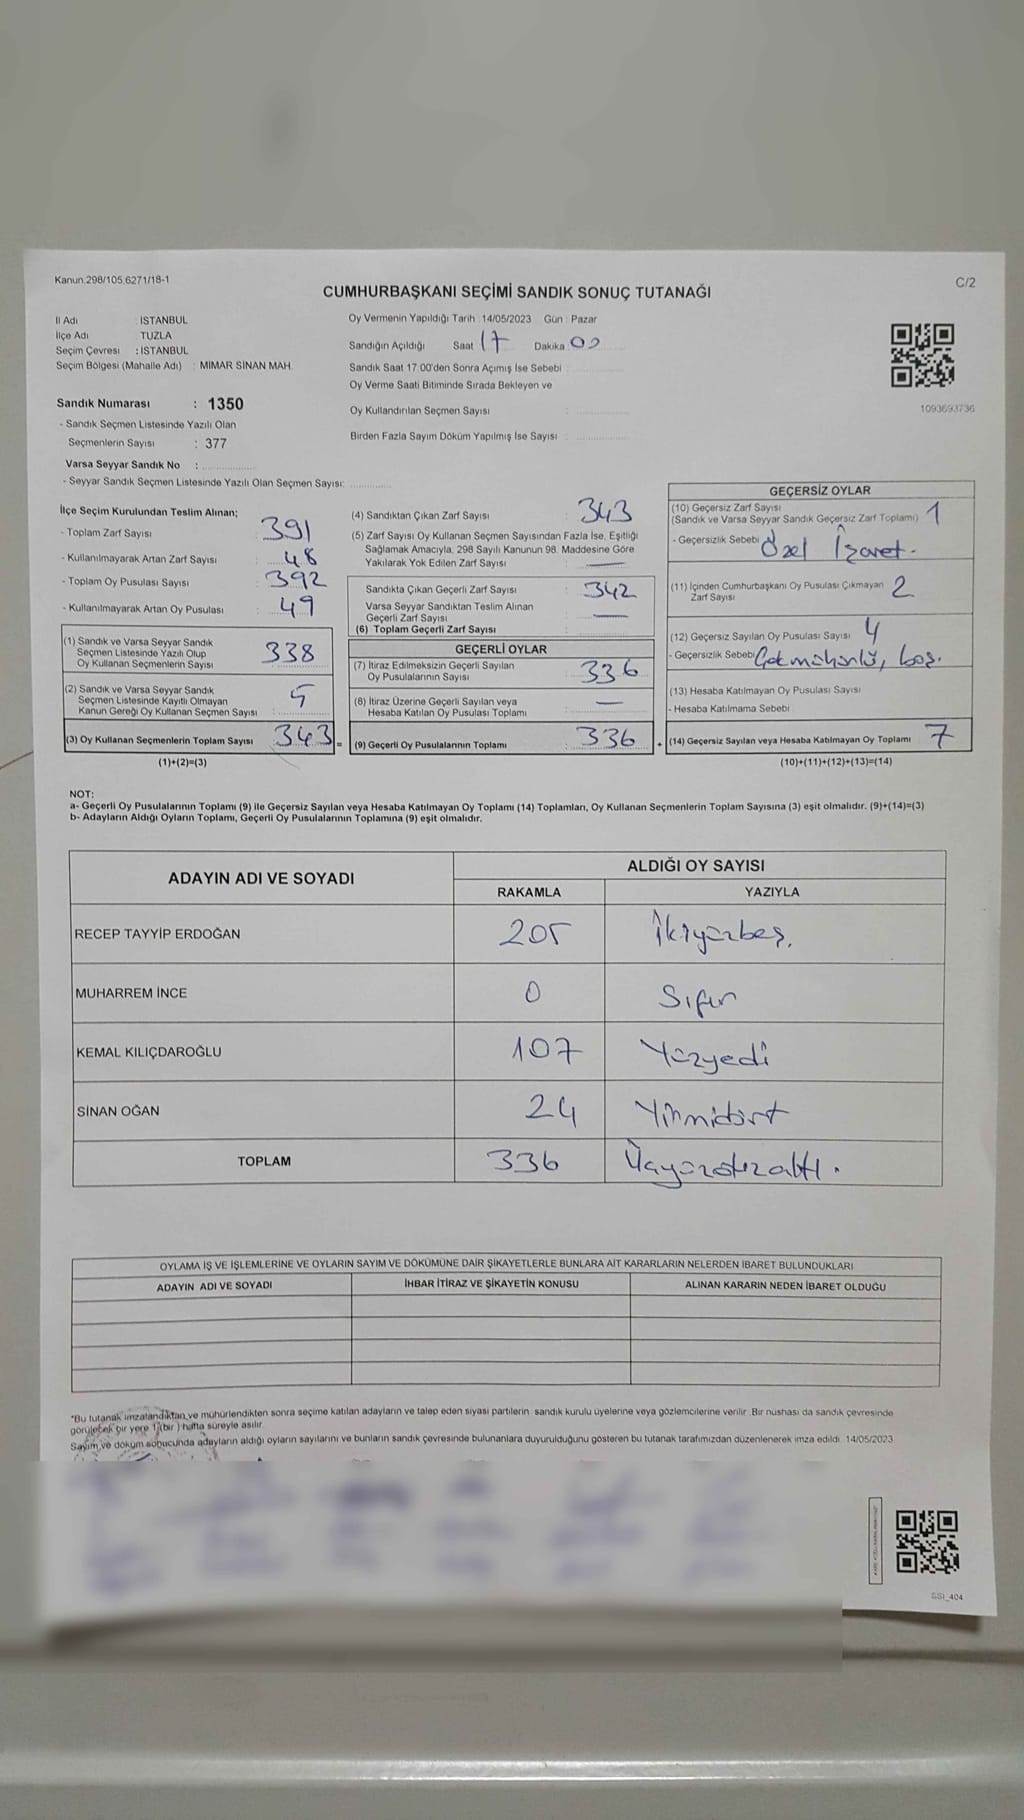 Kanun:298/105,6271/18-1
C/2
CUMHURBAŞKANI SEÇİMİ SANDIK SONUÇ TUTANAĞI
İl Adı : İSTANBUL
İlçe Adı : TUZLA
Seçim Çevresi : İSTANBUL
Seçim Bölgesi (Mahalle Adı) : MİMAR SİNAN MAH.
Sandık Numarası : 1350
- Sandık Seçmen Listesinde Yazılı Olan
Seçmenlerin Sayısı : 377
Varsa Seyyar Sandık No :
- Seyyar Sandık Seçmen Listesinde Yazılı Olan Seçmen Sayısı:
Oy Vermenin Yapıldığı Tarih : 14/05/2023 Gün : Pazar
Sandığın Açıldığı Saat 17 Dakika 00
Sandık Saat 17:00'den Sonra Açımış İse Sebebi :
Oy Verme Saati Bitiminde Sırada Bekleyen ve
Oy Kullandırılan Seçmen Sayısı :
Birden Fazla Sayım Döküm Yapılmış İse Sayısı :
1093693736
İlçe Seçim Kurulundan Teslim Alınan;
- Toplam Zarf Sayısı : 391
- Kullanılmayarak Artan Zarf Sayısı : 48
- Toplam Oy Pusulası Sayısı : 392
- Kullanılmayarak Artan Oy Pusulası : 49
(1) Sandık ve Varsa Seyyar Sandık
Seçmen Listesinde Yazılı Olup
Oy Kullanan Seçmenlerin Sayısı : 338
(2) Sandık ve Varsa Seyyar Sandık
Seçmen Listesinde Kayıtlı Olmayan
Kanun Gereği Oy Kullanan Seçmen Sayısı : 5
(3) Oy Kullanan Seçmenlerin Toplam Sayısı 343 =
(1)+(2)=(3)
(4) Sandıktan Çıkan Zarf Sayısı : 343
(5) Zarf Sayısı Oy Kullanan Seçmen Sayısından Fazla İse, Eşitliği
Sağlamak Amacıyla, 298 Sayılı Kanunun 98. Maddesine Göre
Yakılarak Yok Edilen Zarf Sayısı : —
Sandıkta Çıkan Geçerli Zarf Sayısı : 342
Varsa Seyyar Sandıktan Teslim Alınan
Geçerli Zarf Sayısı : —
(6) Toplam Geçerli Zarf Sayısı :
GEÇERLİ OYLAR
(7) İtiraz Edilmeksizin Geçerli Sayılan
Oy Pusulalarının Sayısı : 336
(8) İtiraz Üzerine Geçerli Sayılan veya
Hesaba Katılan Oy Pusulası Toplamı : —
(9) Geçerli Oy Pusulalarının Toplamı : 336 +
GEÇERSİZ OYLAR
(10) Geçersiz Zarf Sayısı
(Sandık ve Varsa Seyyar Sandık Geçersiz Zarf Toplamı) 1
- Geçersizlik Sebebi Özel İşaret.
(11) İçinden Cumhurbaşkanı Oy Pusulası Çıkmayan
Zarf Sayısı 2
(12) Geçersiz Sayılan Oy Pusulası Sayısı 4
- Geçersizlik Sebebi Çokmühürlü, boş.
(13) Hesaba Katılmayan Oy Pusulası Sayısı
- Hesaba Katılmama Sebebi
(14) Geçersiz Sayılan veya Hesaba Katılmayan Oy Toplamı 7
(10)+(11)+(12)+(13)=(14)
NOT:
a- Geçerli Oy Pusulalarının Toplamı (9) ile Geçersiz Sayılan veya Hesaba Katılmayan Oy Toplamı (14) Toplamları, Oy Kullanan Seçmenlerin Toplam Sayısına (3) eşit olmalıdır. (9)+(14)=(3)
b- Adayların Aldığı Oyların Toplamı, Geçerli Oy Pusulalarının Toplamına (9) eşit olmalıdır.
ADAYIN ADI VE SOYADI ALDIĞI OY SAYISI
RAKAMLA YAZIYLA
RECEP TAYYİP ERDOĞAN 205 İkiyüzbeş.
MUHARREM İNCE 0 Sıfır
KEMAL KILIÇDAROĞLU 107 Yüzyedi
SİNAN OĞAN 24 Yirmidört
TOPLAM 336 Üçyüzotuzaltı.
OYLAMA İŞ VE İŞLEMLERİNE VE OYLARIN SAYIM VE DÖKÜMÜNE DAİR ŞİKAYETLERLE BUNLARA AİT KARARLARIN NELERDEN İBARET BULUNDUKLARI
ADAYIN ADI VE SOYADI İHBAR İTİRAZ VE ŞİKAYETİN KONUSU ALINAN KARARIN NEDEN İBARET OLDUĞU
*Bu tutanak imzalandıktan ve mühürlendikten sonra seçime katılan adayların ve talep eden siyasi partilerin sandık kurulu üyelerine veya gözlemcilerine verilir. Bir nüshası da sandık çevresinde
görülebilecek bir yere 1 (bir ) hafta süreyle asılır.
Sayım ve döküm sonucunda adayların aldığı oyların sayılarını ve bunların sandık çevresinde bulunanlara duyurulduğunu gösteren bu tutanak tarafımızdan düzenlenerek imza edildi. 14/05/2023
SSI_404